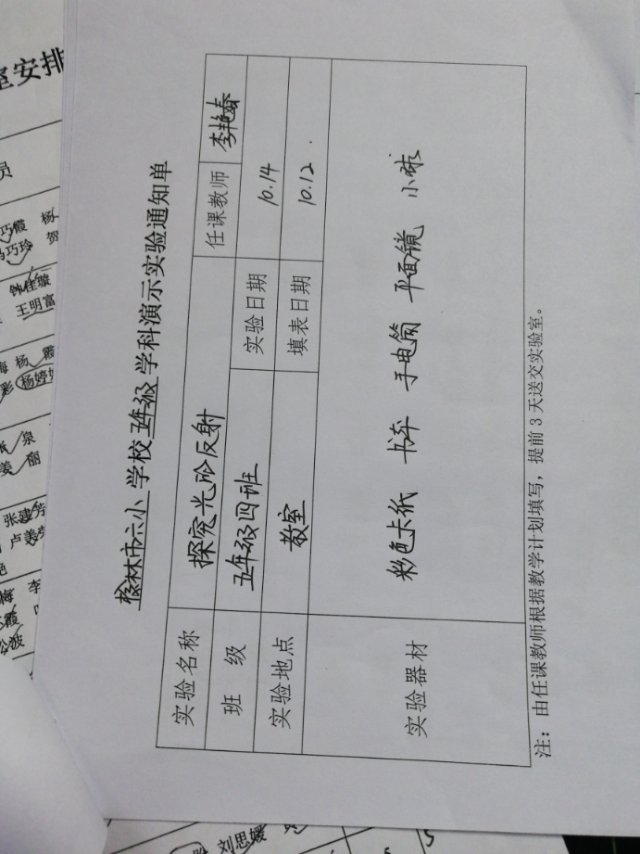 榆林市六小学校五年级学科演示实验通知单
实验名称 探究光的反射 任课教师 李艳春
班级 五年级四班 实验日期 10.14
实验地点 教室 填表日期 10.12.
实验器材 彩色卡纸 书本 手电筒 平面镜
注：由任课教师根据教学计划填写，提前3天送交实验室。
室安排
员
巧霞 杨
马巧玲
韩佳璇
王明富
杨 霞
杨婷
泉
张建芳
卢姜
李
霞
刘思媛
5